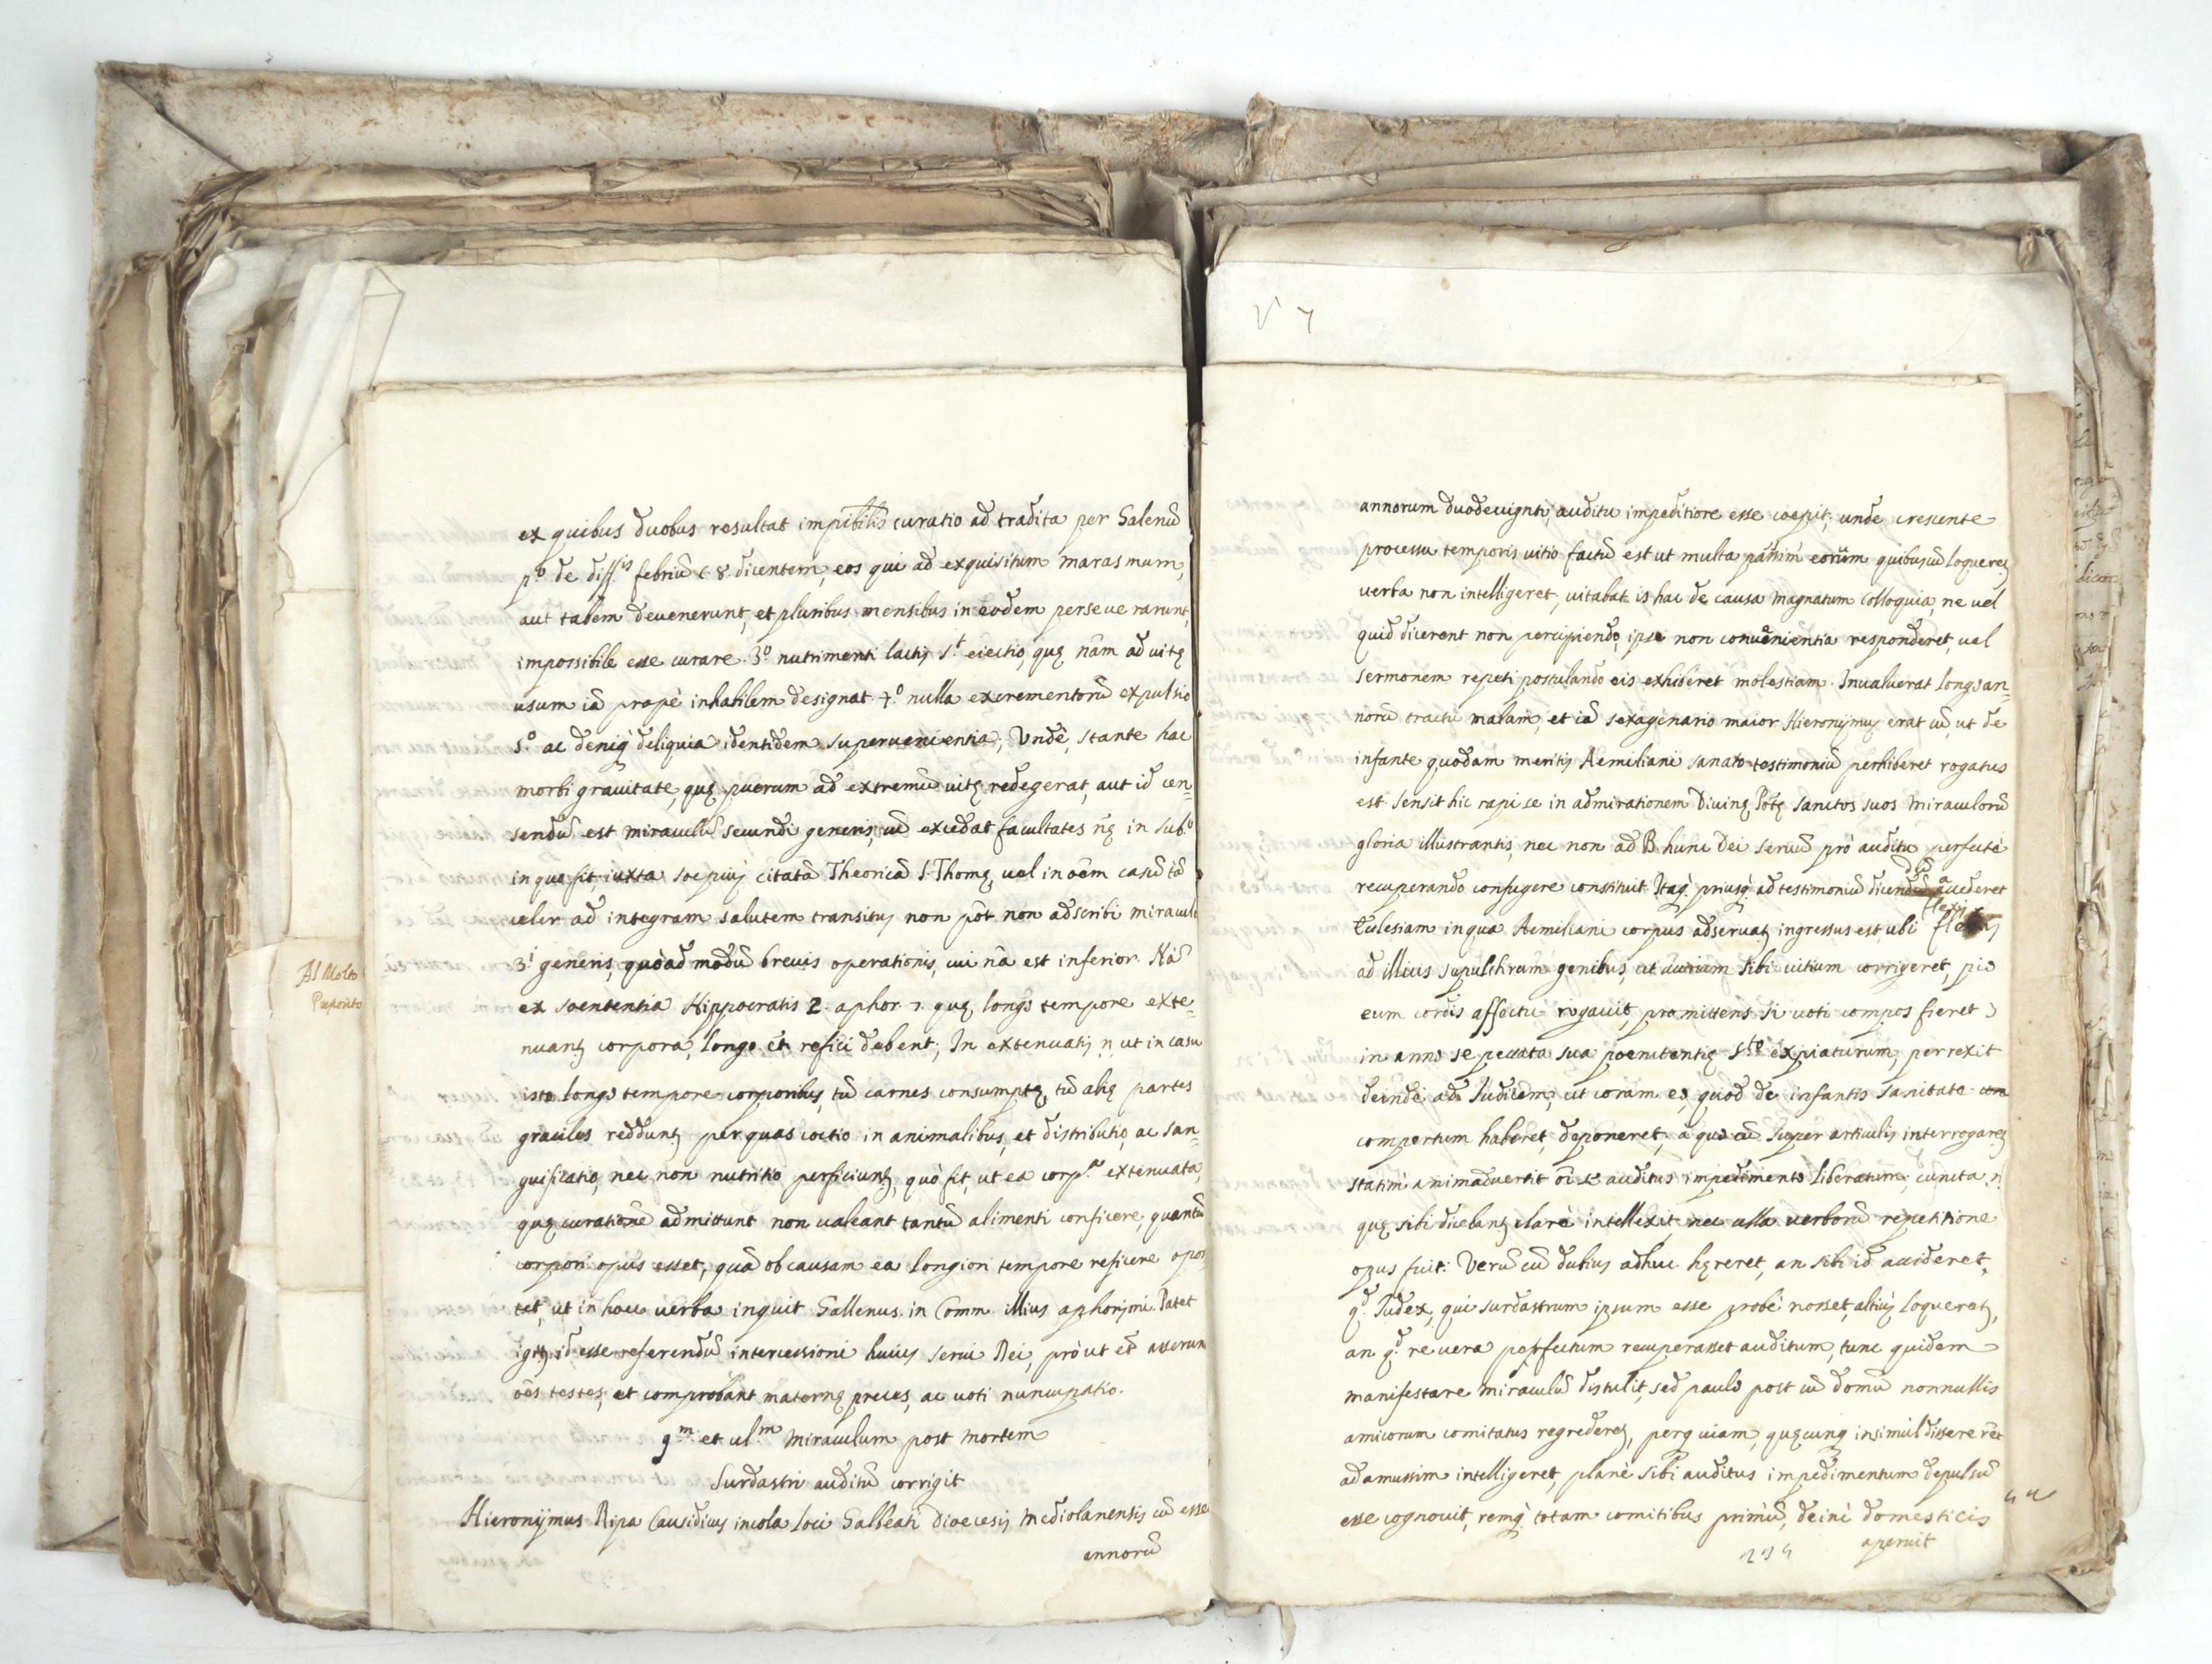 ex quibus duobus resultat impībilis curatio ad tradita per Galenū
p.º de diff.is febriū c. 8. dicentem, eos qui ad exquisitum marasmum,
aut talem devenerunt, et pluribus mensibus in eodem perseverarunt,
impossibile esse curare. 3º nutrimenti lactis s.t eiectio, quę nām ad vitę
usum iā propè inhabilem designat 4º. nulla excrementorū expulsio
5.º ac deniq deliquia identidem supervenientia; Undè, stante hac
morbi gravitate, quę puerum ad extremū vitę redegerat, aut id cen=
sendū est miraculū secundi generis, cū excedat facultates nę in sub.º
in quo fit, iuxta soepius citatā Theoricā S. Thomę, vel in oēm casū tā
celer ad integram salutem transitus non pōt non adscribi miraculo
3.i generis, quòad modū brevis operationis, cui nā est inferior. Nā
ex soententia Hippocratis 2. aphor. 7. quę longo tempore exte=
nuantʒ corpora, longo et refici debent; In extenuatis n. ut in casu
isto longo tempore corporibus, tū carnes consumptę, tū alię partes
graciles reddunt, per quas coctio in animalibus, et distributio, ac san=
guificatio, nec non nutritio perficiunt, quò fit, ut ea corp.a extenuata,
quę curatione admittunt non valeant tantū alimenti conficere, quantū
corpori opus esset, quā ob causam ea longiori tempore reficere opor
tet, ut in hoec verba inquit Gallenus in Comm. illius aphorismi. Patet
igitʒ id esse referendū intercessioni huius servi Dei, pròut et asserunt
oēs testes, et comprobant maternę preces, ac voti nuncupatio.
9.m et ul.m Miraculum post mortem
Surdastri auditū corrigit
Hieronymus Ripa Causidicus incola loci Galbeati Dioecesis Mediolanensis cū esset
annorū
Al Molto
Preposito
V 7
annorum duodeviginti, auditu impeditiore esse coepit; unde crescente
processu temporis vitio factū est ut multa passim eorum quibuscū loqueretʒ
verba non intelligeret, vitabat is hac de causa Magnatum Colloquia, ne vel
quid dicerent non percipiendo, ipse non convenientia responderet, vel
sermonem repeti postulando eis exhiberet molestiam. Invaluerat longo an=
norū tractu malum, et iā sexagenario maior Hieronymus erat cū, ut de
infante quodam meritis Aemiliani sanato testimoniū perhiberet rogatus
est. Sensit hic rapi se in admirationem Divinę Potę Sanctos suos miraculorū
gloria illustrantis, nec non ad B. hunc Dei servū prò auditu perfectè
recuperando confugere constituit. Itaq. priusq. ad testimoniū dicendū accederet
Eclesiam in qua Aemiliani corpus adservatʒ ingressus est, ubi flexis
ad illius sepulchrum genibus, ut aurium sibi vitium corrigeret, pio
eum cordis affectu rogavit, promittens si voti compos fieret
in anno se peccata sua poenitentię s.to expiaturum, perrexit
deinde ad Iudicem, ut coram eo, quod de infantis sanitate
compertum haberet, deponeret, a quo cū super articulis interrogaretʒ
statim animadvertit oī se auditus impedimento liberatum; cuncta n.
quę sibi dicebantʒ clarè intellexit, nec ulla verborū repetitione
opus fuit. Verū cū dubius adhuc hęreret, an sibi id accideret,
q.d Iudex, qui surdastrum ipsum esse probè nosset, altius loqueretʒ,
an q.d revera perfectum recuperasset auditum, tunc quidem
manifestare miraculū distulit, sed paulo post cū domū nonnullis
amicorum comitatus regrederetʒ, perq viam, quęcunq insimul dissererēt
adamussim intelligeret, planè sibi auditus impedimentum depulsū
esse cognovit, remq. totam comitibus primū, deinè domesticis
aperuit